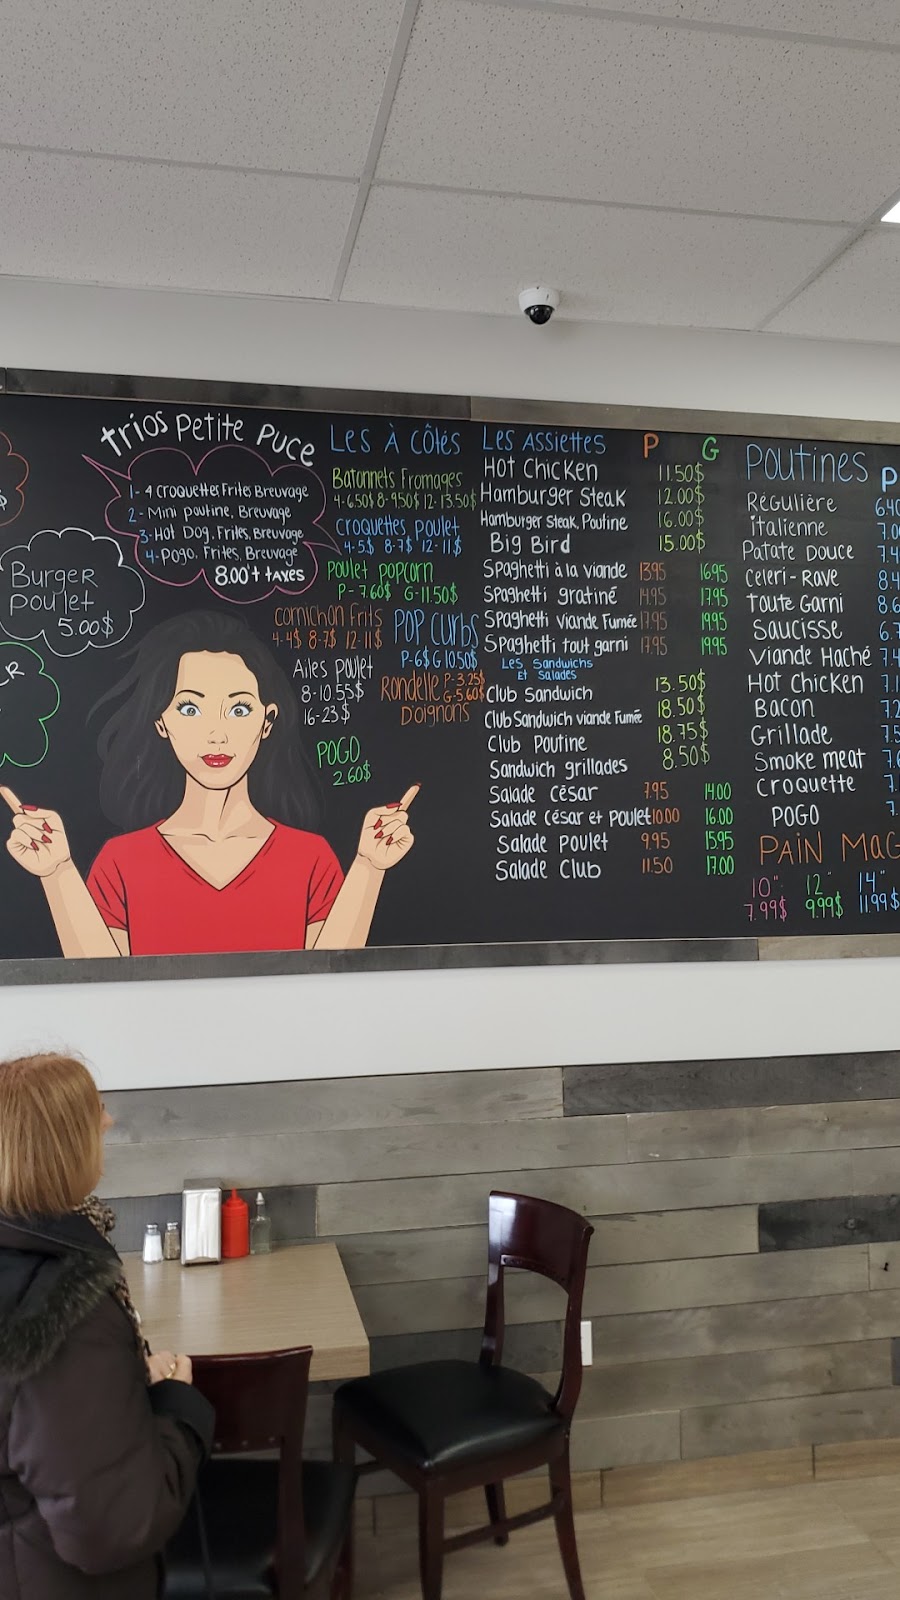 trios Petite Puce
1- 4 croquettes Frites Breuvage
2- Mini poutine, Breuvage
3- Hot Dog, Frites, Breuvage
4- Pogo, Frites, Breuvage
8.00 + taxes
Burger
poulet
5.00$
Les À Côtés
Batonnets Fromages
4-6.50$ 8-9.50$ 12-13.50$
croquettes poulet
4-5$ 8-7$ 12-11$
Poulet popcorn
P-7.60$ G-11.50$
cornichon frits
4-4$ 8-7$ 12-11$
POP curbs
P-6$ G 10.50$
Ailes poulet
8-10.55$
16-23$
Rondelle P-3.25$
G-5.60$
D'oignons
POGO
2.60$
Les Assiettes P G
Hot Chicken 11.50$
Hamburger Steak 12.00$
Hamburger Steak, Poutine 16.00$
Big Bird 15.00$
Spaghetti à la viande 13.95 16.95
Spaghetti gratiné 14.95 17.95
Spaghetti Viande Fumée 17.95 19.95
Spaghetti tout garni 17.95 19.95
Les Sandwichs
Et Salades
Club Sandwich 13.50$
Club Sandwich viande Fumé 18.50$
Club Poutine 18.75$
Sandwich grillades 8.50$
Salade César 7.95 14.00
Salade César et Poulet 10.00 16.00
Salade Poulet 9.95 15.95
Salade Club 11.50 17.00
Poutines P
Régulière 6.40
italienne 7.0
Patate Douce 7.4
Céleri-Rave 8.4
Toute Garni 8.6
Saucisse 6.7
Viande Haché 7.4
Hot Chicken 7.1
Bacon 7.2
Grillade 7.5
Smoke meat 7.6
Croquette 7.
POGO 7.
PAIN MAG
10" 12" 14"
7.99$ 9.99$ 11.99$